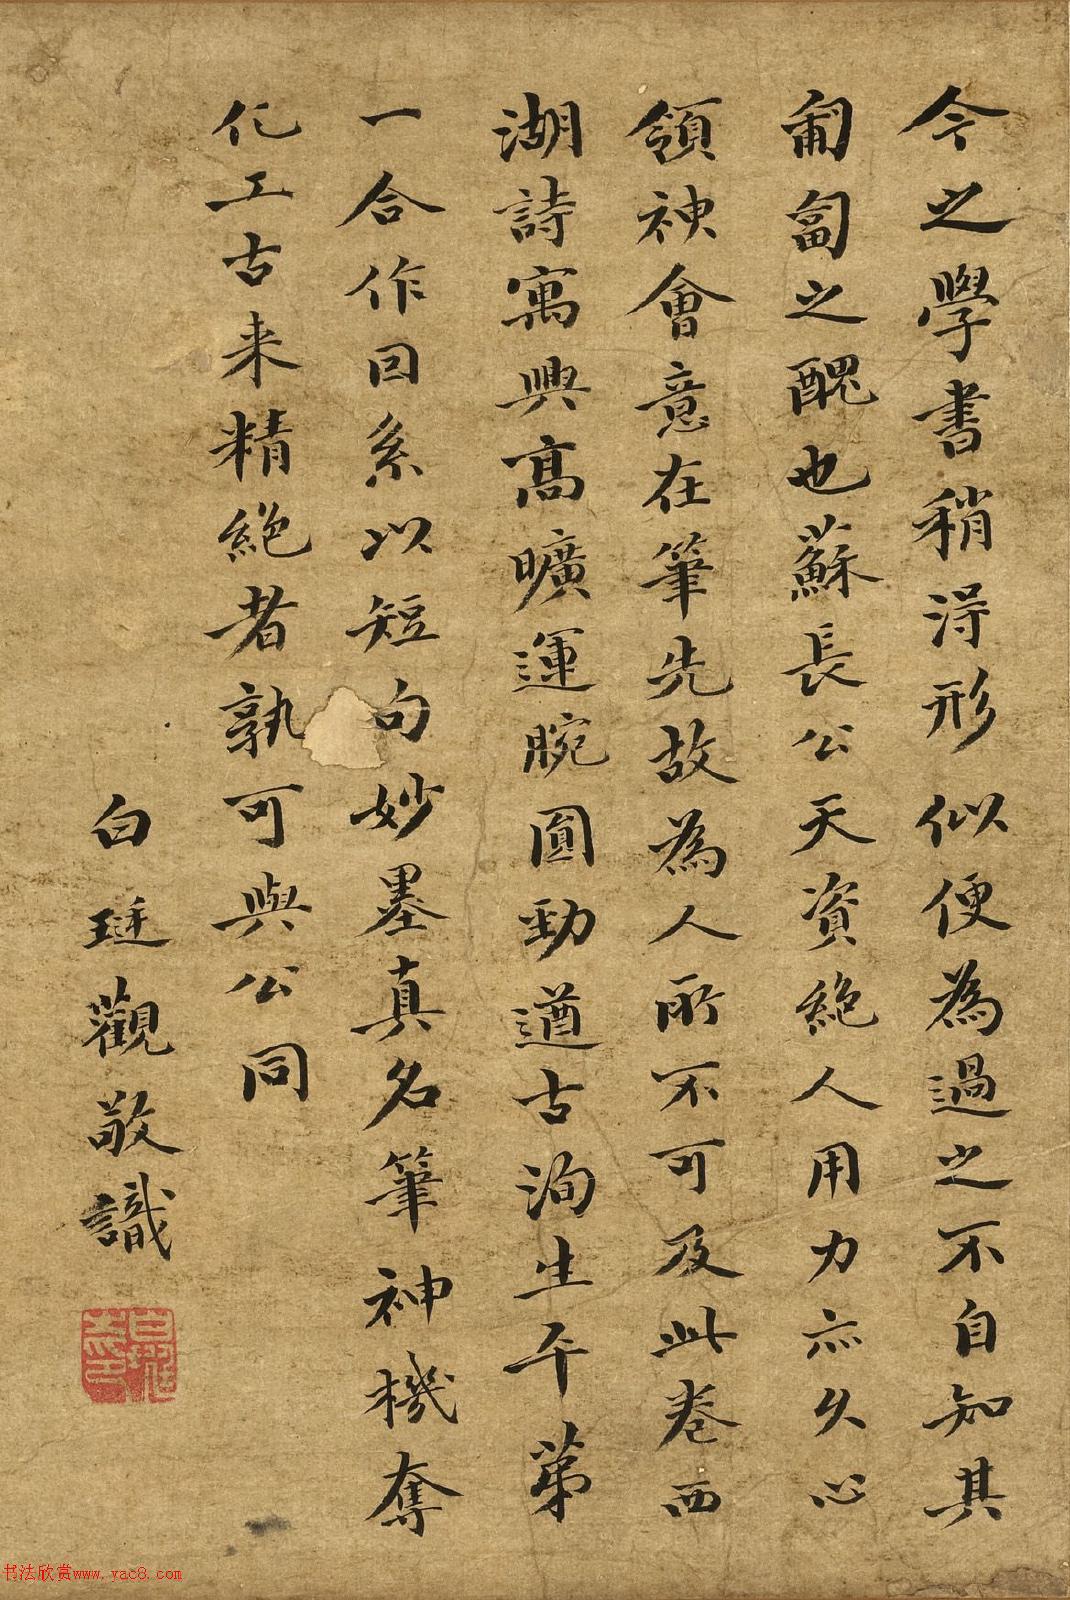 今之學書稍得形似便為過之不自知其
匍匐之醜也蘇長公天資絶人用力亦久心
領神會意在筆先故為人所不可及此卷西
湖詩寓興高曠運腕圓勁遒古洵生平第
一合作回系以短句妙墨真名筆神機奪
化工古来精絶者孰可與公同
白珽觀敬識
书法欣赏www.yac8.com